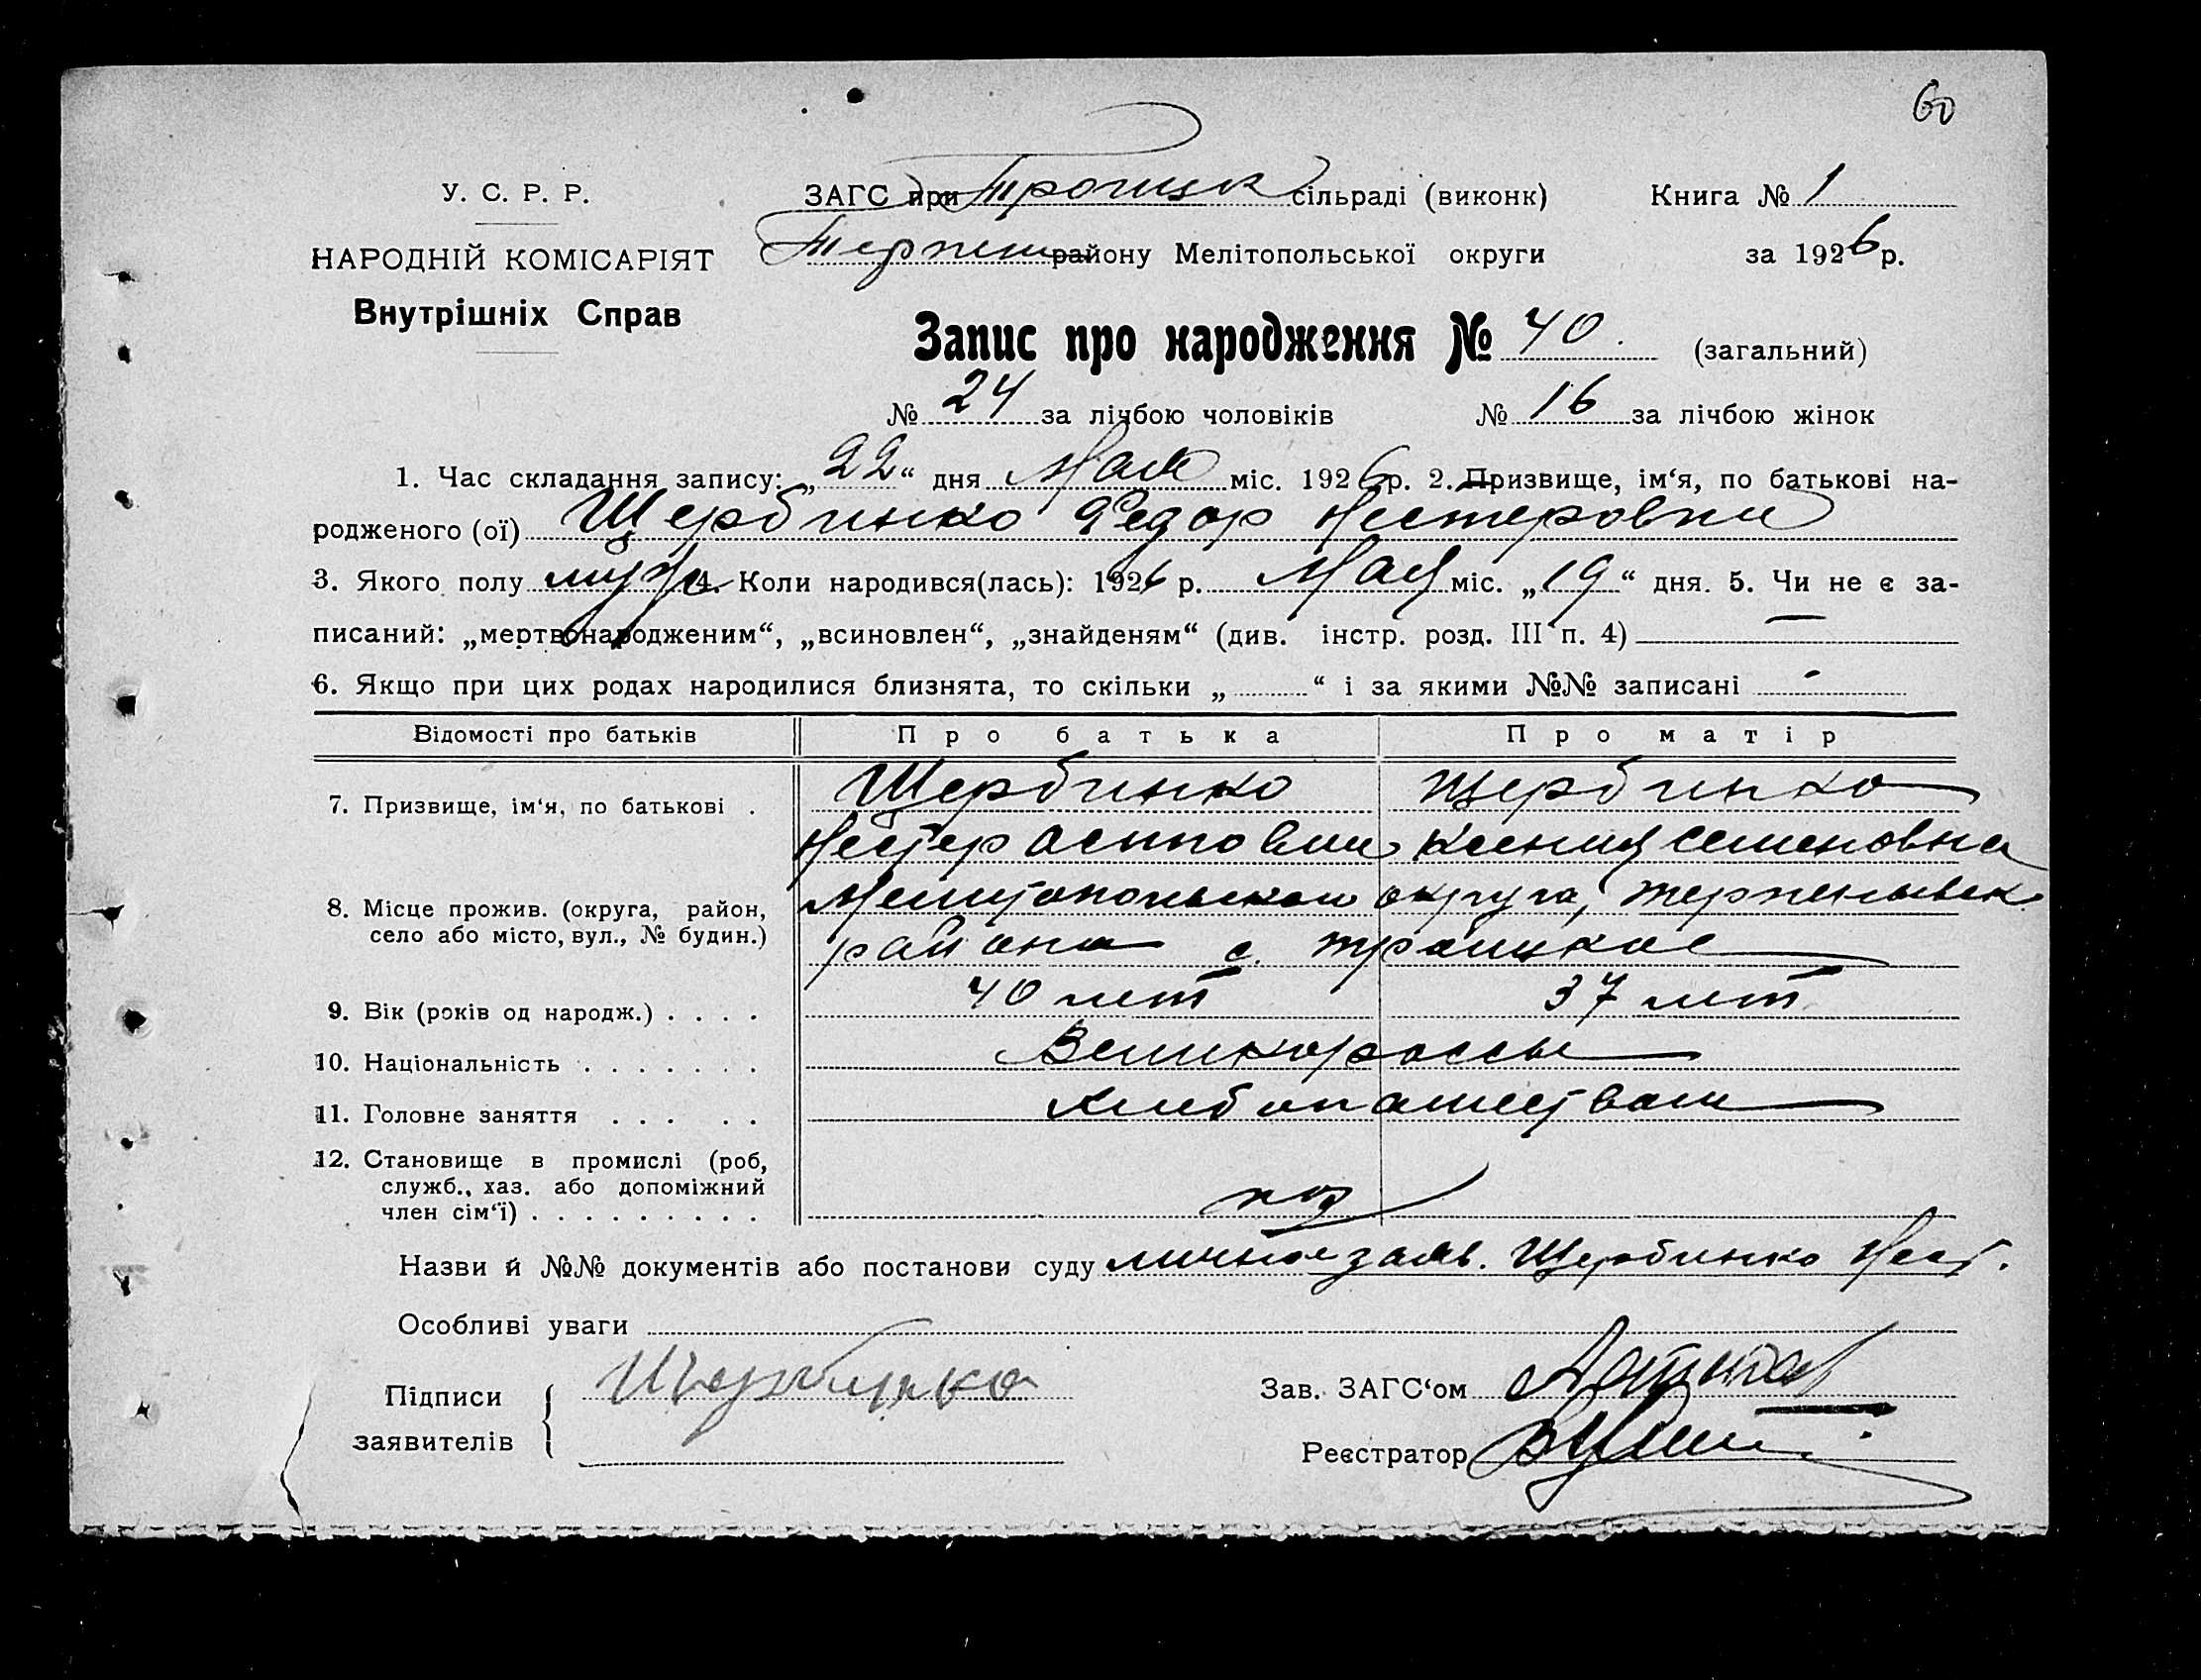 60
У. С. Р. Р. ЗАГС при Троицк сільраді (виконк) Книга № 1
НАРОДНІЙ КОМІСАРІЯТ Терпен району Мелітопольської округи за 1926 р.
Внутрішніх Справ
Запис про народження № 40. (загальний)
№ 24 за лічбою чоловіків № 16 за лічбою жінок
1. Час складання запису: „22“ дня Мая міс. 1926 р. 2. Призвище, ім‘я, по батькові на-
родженого (ої) Щербинко Федор Нестерович
3. Якого полу муж 4. Коли народився(лась): 1926 р. Мая міс. „19“ дня. 5. Чи не є за-
писаний: „мертвонародженим“, „всиновлен“, „знайденям“ (див. інстр. розд. III п. 4) —
6. Якщо при цих родах народилися близнята, то скільки „ “ і за якими №№ записані -
Відомості про батьків Про батька Про матір
7. Призвище, ім‘я, по батькові . Щербинко Щербинко
Нестер Осипович Ксения Семеновна
8. Місце прожив. (округа, район, Мелитопольском округа, Терпеньевск
село або місто, вул., № будин.) района с. Троицкое
9. Вік (років од народж.) . . . . 40 лет 37 лет
10. Національність . . . . . . . Великороссы
11. Головне заняття . . . . . Хлебопашеством
12. Становище в промислі (роб,
служб., хаз. або допоміжний
член сім‘ї) . . . . . . . . .
Назви й №№ документів або постанови суду личное заяв. Щербинко Нест.
Особливі уваги
Підписи Щербинко Зав. ЗАГС‘ом
заявителів Реєстратор